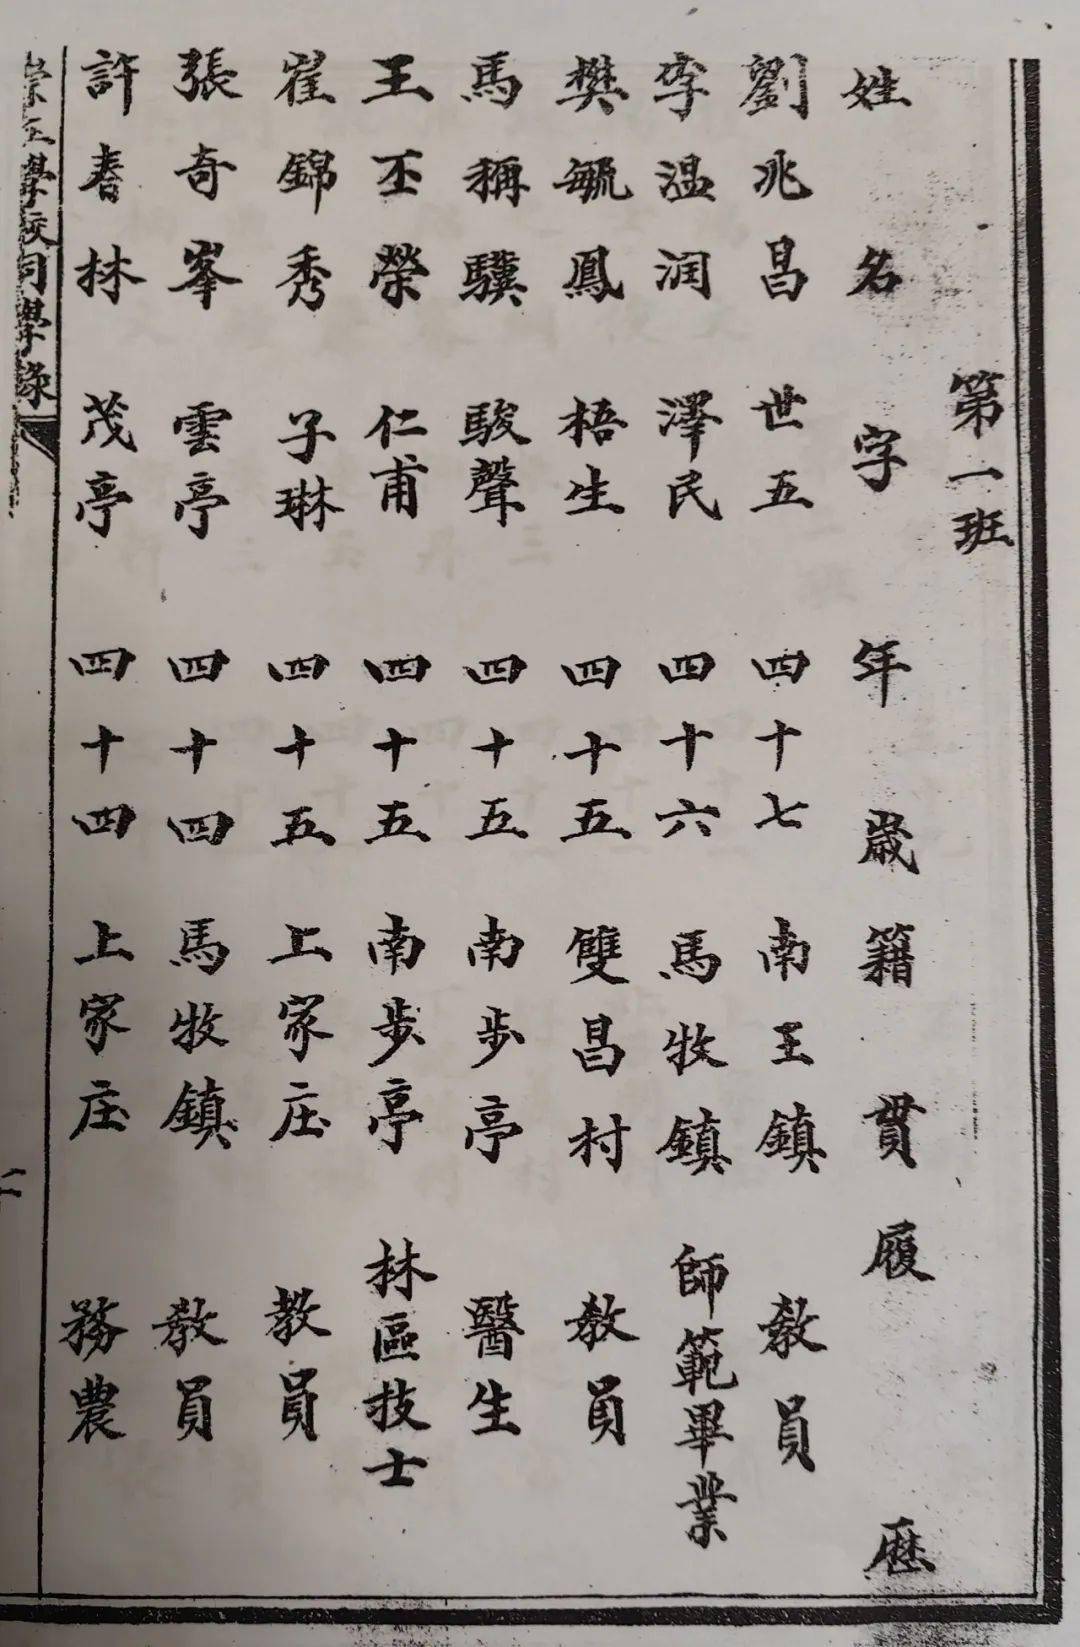 第一班
姓名 字 年歲 籍貫 履歷
劉兆昌 世五 四十七 南王鎮 教員
李温润 澤民 四十六 馬牧鎮 師範畢業
樊毓鳳 梧生 四十五 雙昌村 教員
馬稱驥 駿聲 四十五 南步亭 醫生
王丕榮 仁甫 四十五 南步亭 林區技士
崔錦秀 子琳 四十五 上家庄 教員
張奇峯 雲亭 四十四 馬牧鎮 教員
許春林 茂亭 四十四 上家庄 務農
學校同學錄